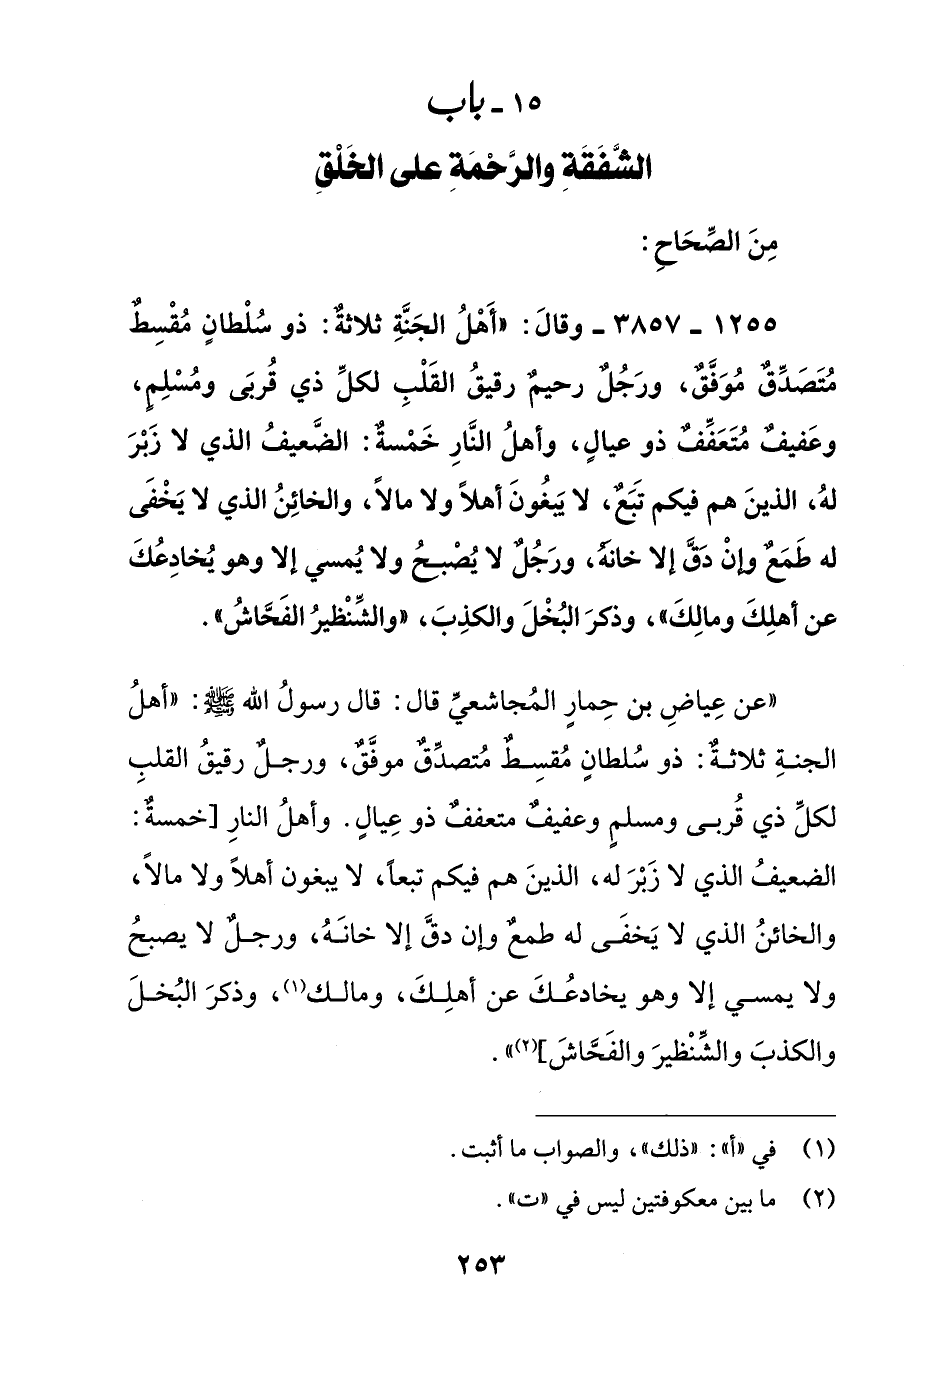 ١٥ ـ باب
الشَّفَقَةِ والرَّحْمَةِ على الخَلْقِ
مِنَ الصِّحَاحِ :
١٢٥٥ ـ ٣٨٥٧ ـ وقالَ: «أَهْلُ الجَنَّةِ ثلاثةٌ: ذو سُلْطانٍ مُقْسِطٌ
مُتَصَدِّقٌ مُوَفَّقٌ، ورَجُلٌ رحيمٌ رقيقُ القَلْبِ لكلِّ ذي قُربَى ومُسْلِمٍ،
وعَفيفٌ مُتَعَفِّفٌ ذو عيالٍ، وأهلُ النَّارِ خَمْسةٌ: الضَّعيفُ الذي لا زَبْرَ
لهُ، الذينَ هم فيكم تَبَعٌ، لا يَبغُونَ أهلاً ولا مالاً، والخائِنُ الذي لا يَخْفَى
له طَمَعٌ وإنْ دَقَّ إلا خانَهُ، ورَجُلٌ لا يُصْبحُ ولا يُمسي إلا وهو يُخادِعُكَ
عن أهلِكَ ومالِكَ»، وذكرَ البُخْلَ والكذِبَ، «والشِّنْظيرُ الفَحَّاشُ».
«عن عِياضِ بن حِمارٍ المُجاشعيِّ قال: قال رسولُ الله ﷺ: «أهلُ
الجنةِ ثلاثةٌ: ذو سُلطانٍ مُقسطٌ مُتصدِّقٌ موفَّقٌ، ورجلٌ رقيقُ القلبِ
لكلِّ ذي قُربى ومسلمٍ وعفيفٌ متعففٌ ذو عِيالٍ. وأهلُ النارِ [خمسةٌ:
الضعيفُ الذي لا زَبْرَ له، الذينَ هم فيكم تبعاً، لا يبغون أهلاً ولا مالاً،
والخائنُ الذي لا يَخفَى له طمعٌ وإن دقَّ إلا خانَهُ، ورجلٌ لا يصبحُ
ولا يمسي إلا وهو يخادعُكَ عن أهلِكَ، ومالك(١)، وذكرَ البُخلَ
والكذبَ والشِّنْظيرَ والفَحَّاشَ](٢)».
(١) في «أ»: «ذلك»، والصواب ما أثبت.
(٢) ما بين معكوفتين ليس في «ت».
٢٥٣